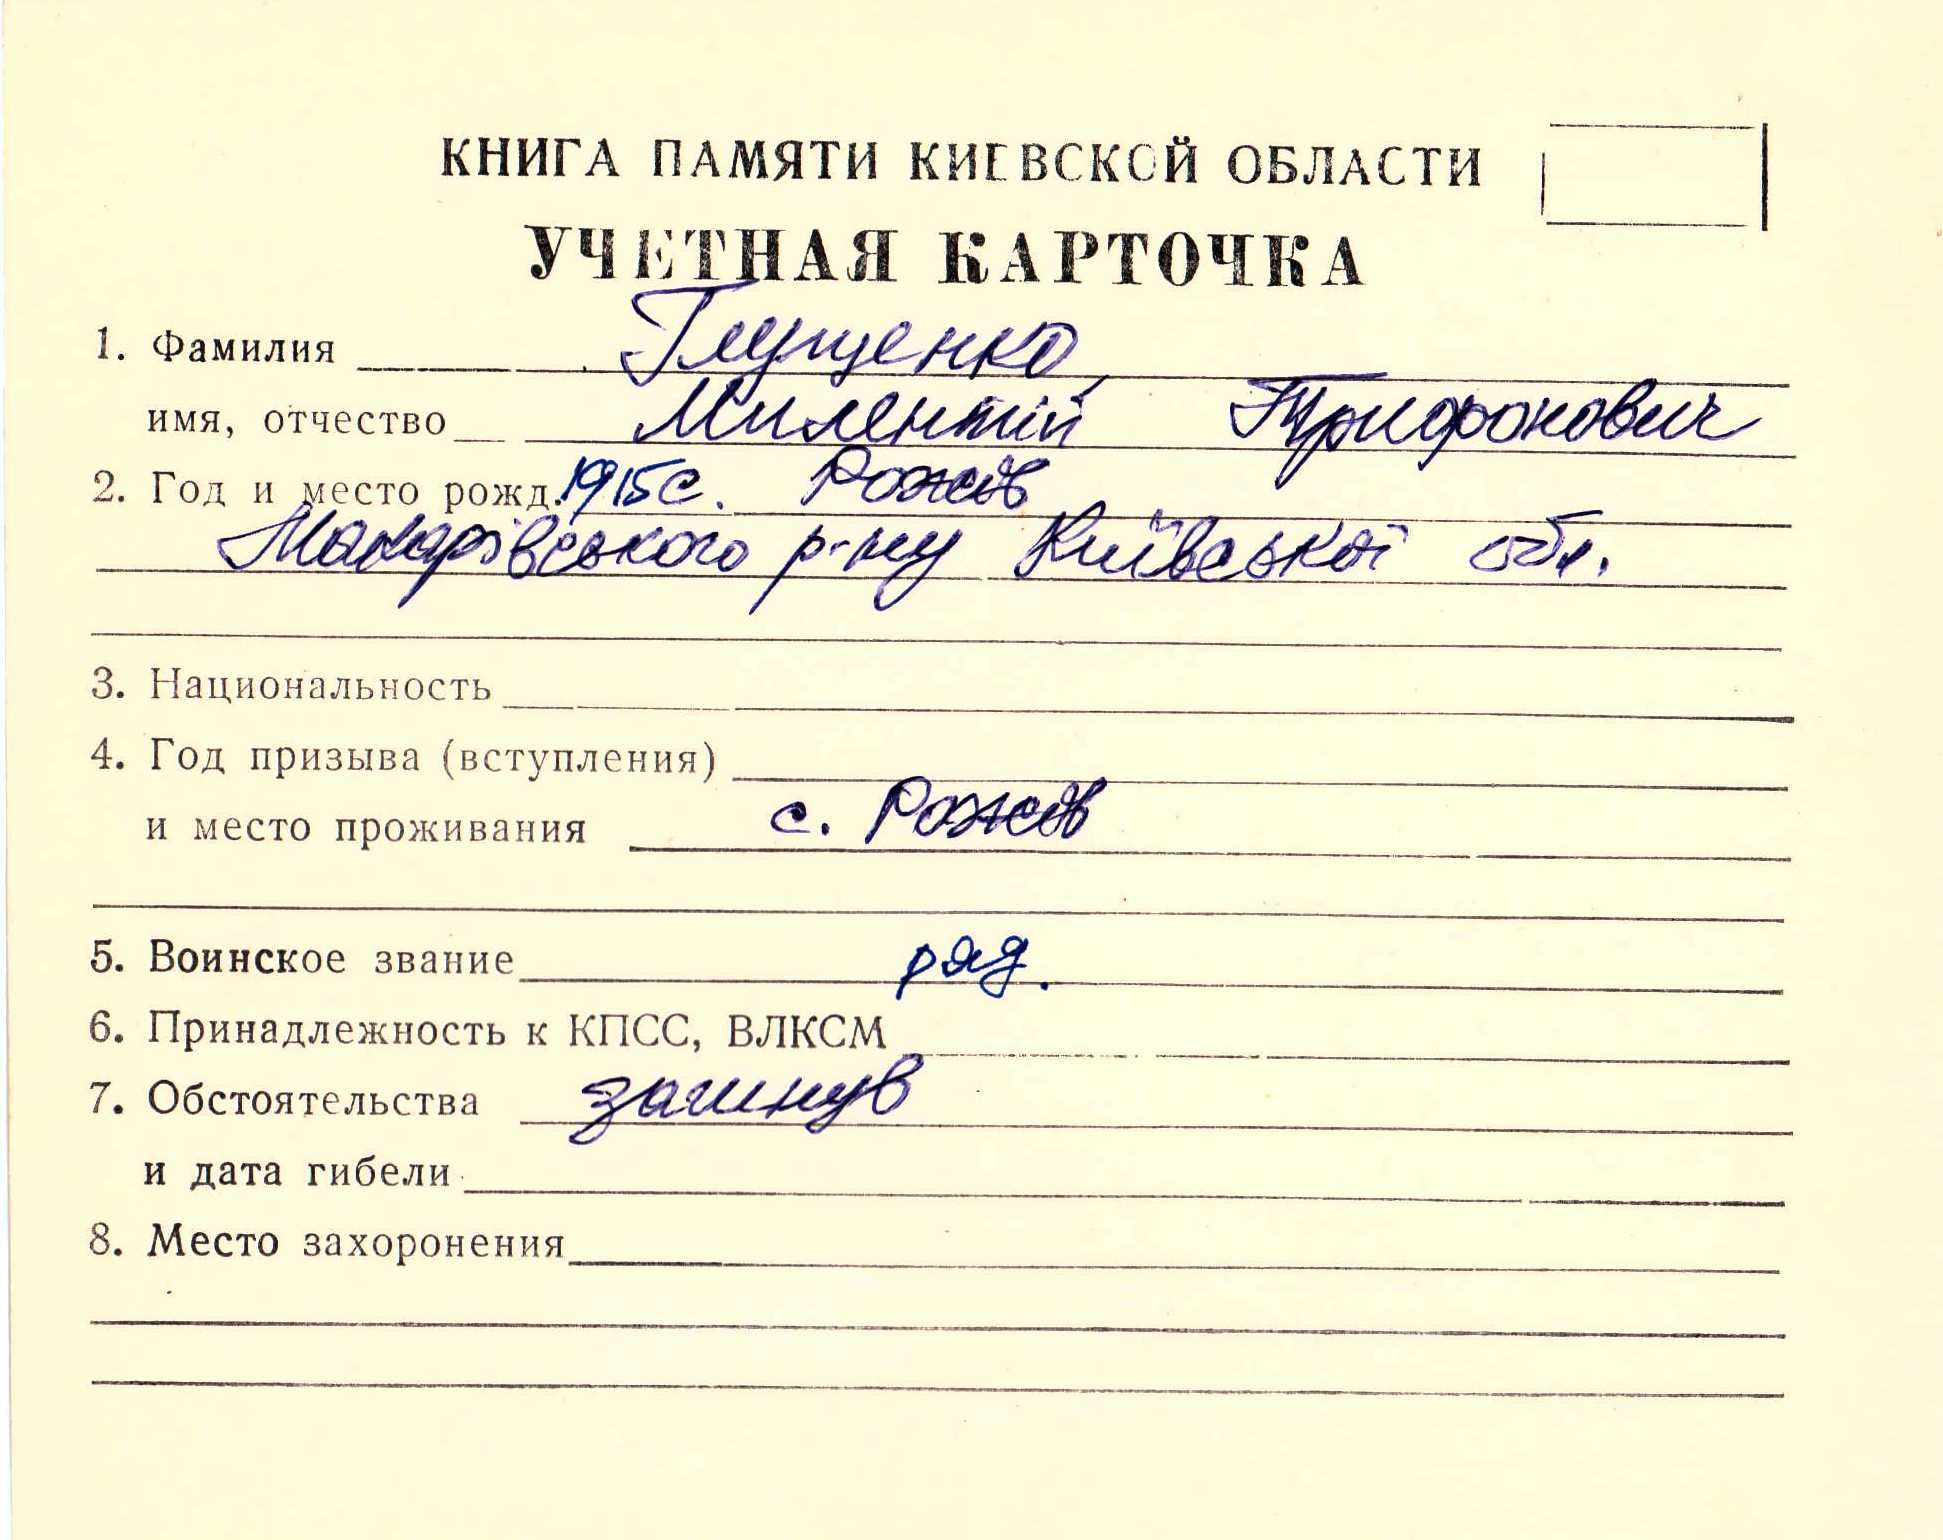 КНИГА ПАМЯТИ КИЕВСКОЙ ОБЛАСТИ
УЧЕТНАЯ КАРТОЧКА
1. Фамилия Глущенко
имя, отчество Милентій Трифонович
2. Год и место рожд. 1915 с. Рожів
Макарівського р-ну Київської обл.
3. Национальность
4. Год призыва (вступления)
и место проживания с. Рожів
5. Воинское звание ряд.
6. Принадлежность к КПСС, ВЛКСМ
7. Обстоятельства загинув
и дата гибели
8. Место захоронения